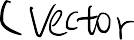 C Vector